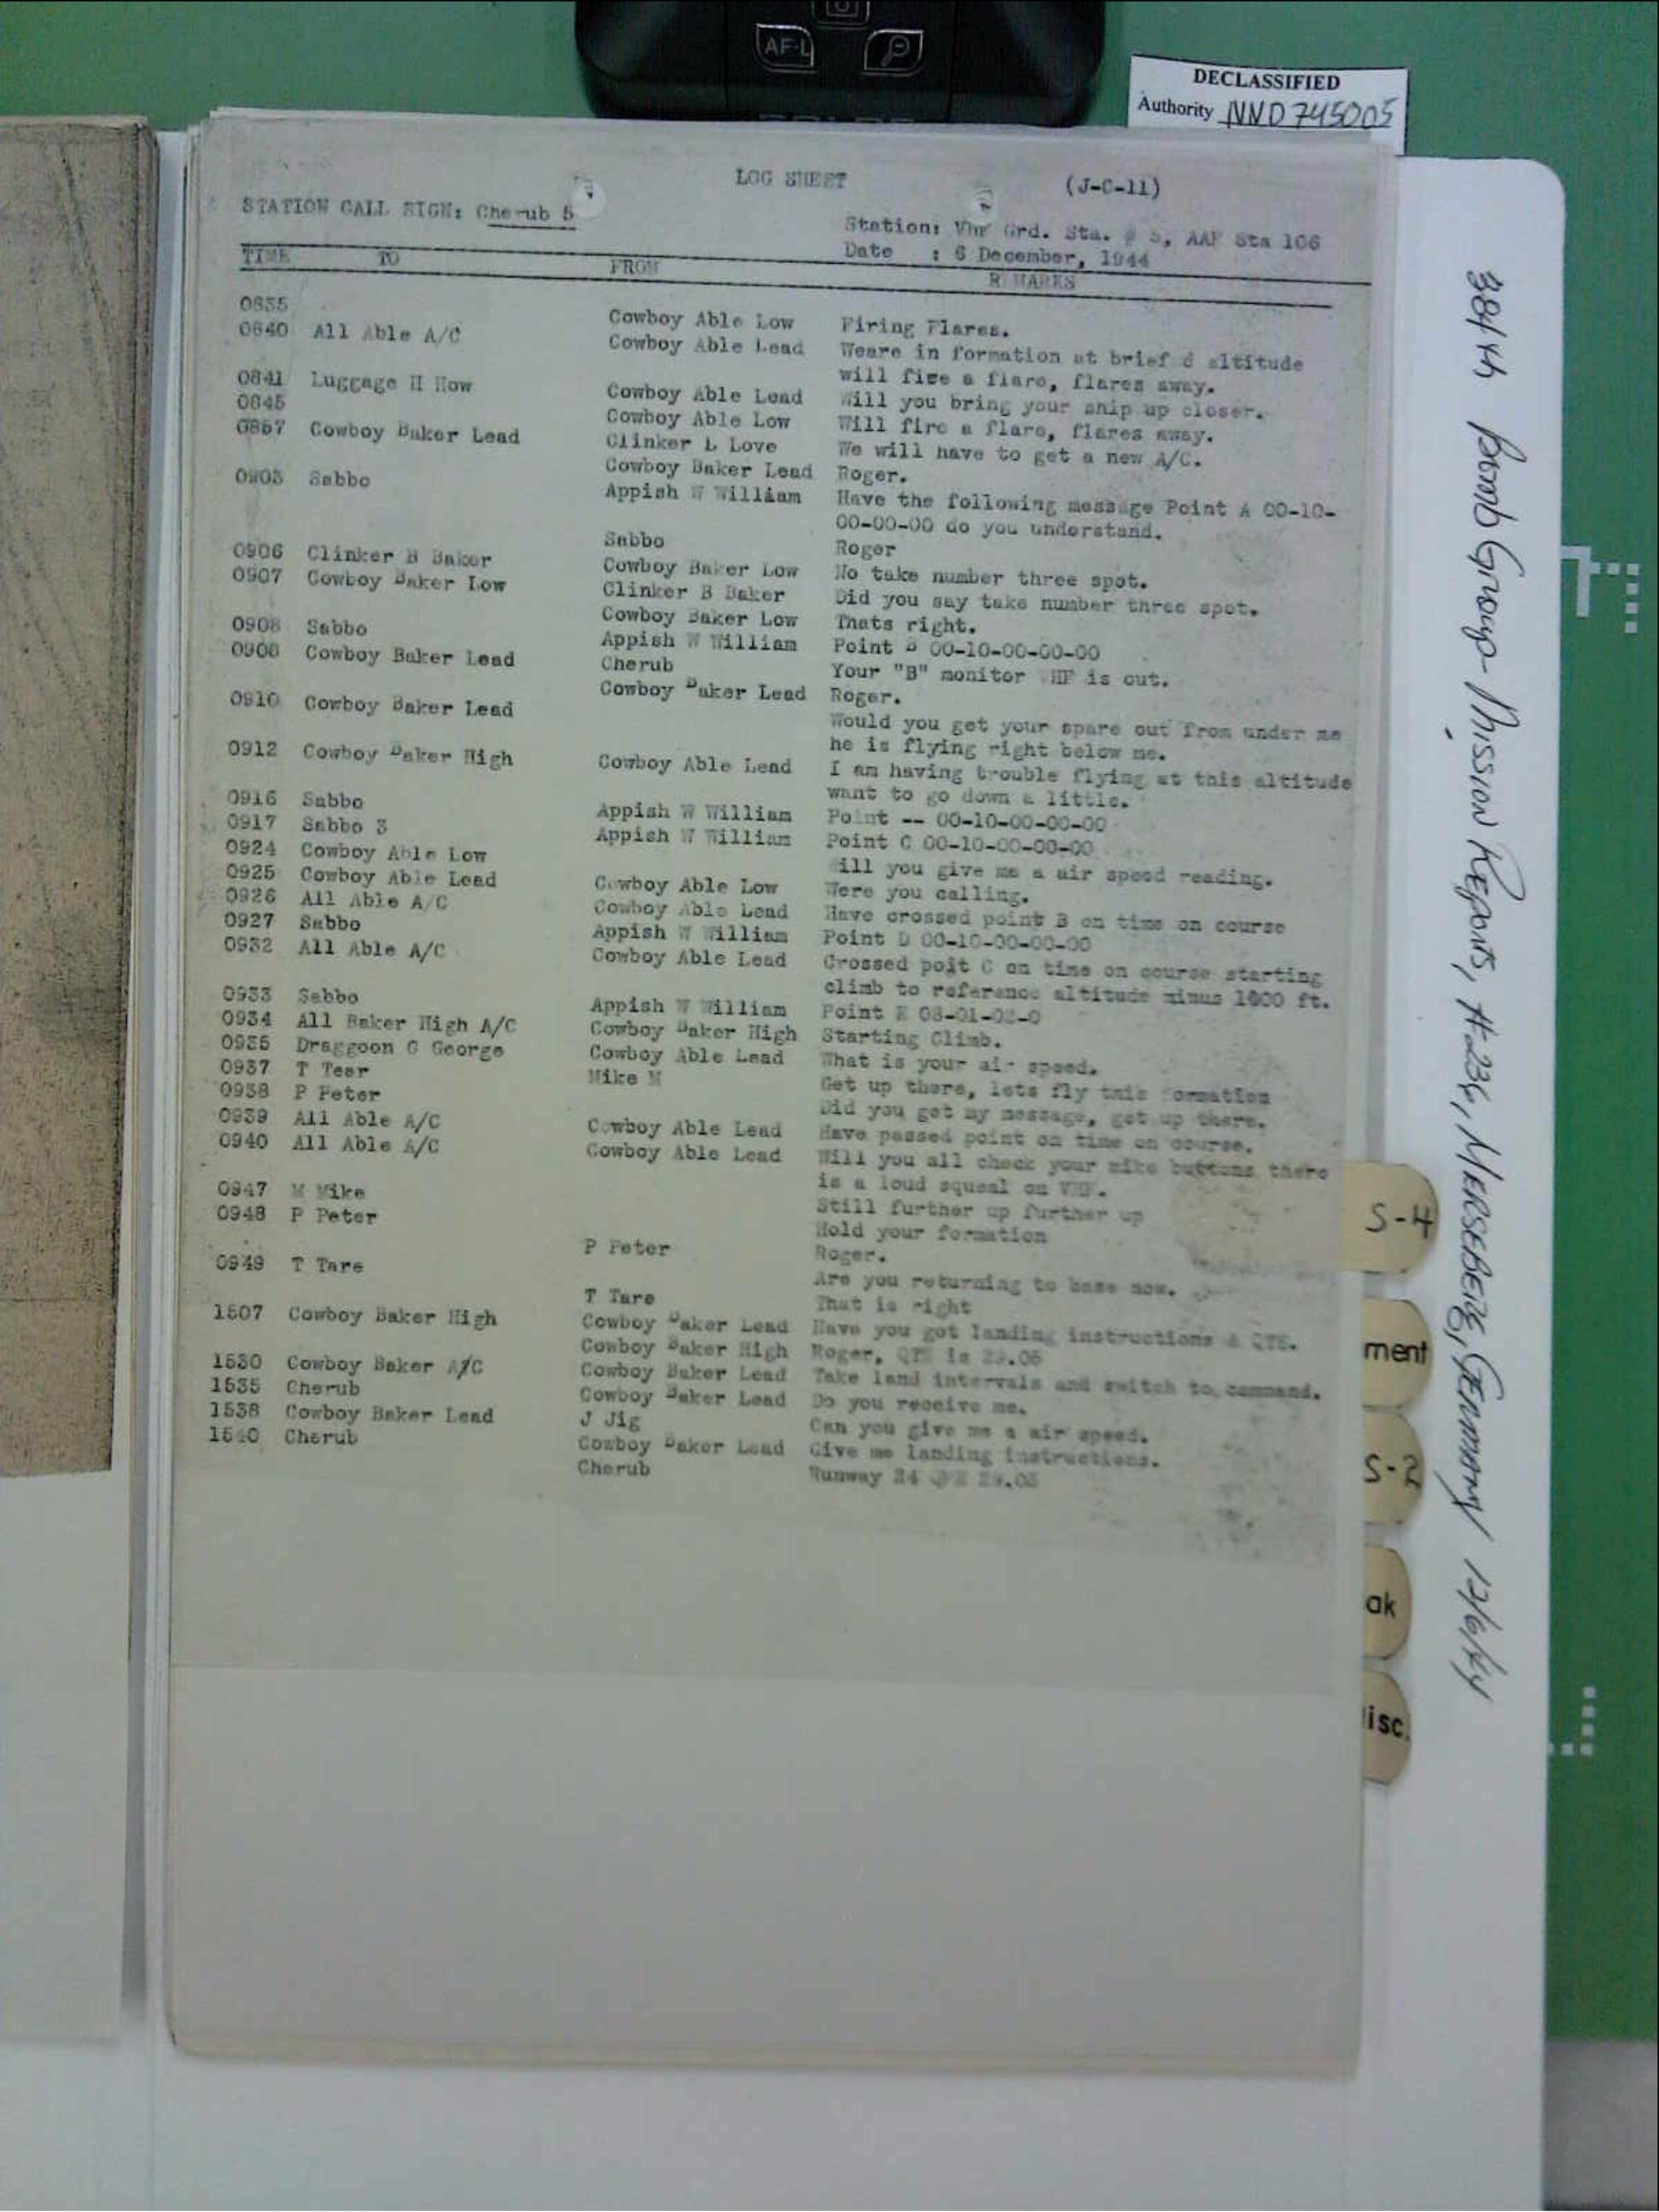 AF-L
DECLASSIFIED
Authority NND 745005
LOG SHEET (J-C-11)
STATION CALL SIGN: Cherub 5
Station: Vhf Grd. Sta. # 5, AAF Sta 106
Date : 6 December, 1944
TIME TO FROM REMARKS
0835 Cowboy Able Low Firing Flares.
0840 All Able A/C Cowboy Able Lead Weare in formation at brief d altitude
will fire a flare, flares away.
0841 Luggage H How Cowboy Able Lead Will you bring your ship up closer.
0845 Cowboy Able Low Will fire a flare, flares away.
0857 Cowboy Baker Lead Clinker L Love We will have to get a new A/C.
Cowboy Baker Lead Roger.
0903 Sabbo Appish W William Have the following message Point A 00-10-
00-00-00 do you understand.
Sabbo Roger
0906 Clinker B Baker Cowboy Baker Low No take number three spot.
0907 Cowboy Baker Low Clinker B Baker Did you say take number three spot.
Cowboy Baker Low Thats right.
0908 Sabbo Appish W William Point B 00-10-00-00-00
0908 Cowboy Baker Lead Cherub Your "B" monitor VHF is out.
Cowboy Baker Lead Roger.
0910 Cowboy Baker Lead Would you get your spare out from under me
he is flying right below me.
0912 Cowboy Baker High Cowboy Able Lead I am having trouble flying at this altitude
want to go down a little.
0916 Sabbo Appish W William Point -- 00-10-00-00-00
0917 Sabbo 3 Appish W William Point C 00-10-00-00-00
0924 Cowboy Able Low Will you give me a air speed reading.
0925 Cowboy Able Lead Cowboy Able Low Were you calling.
0926 All Able A/C Cowboy Able Lead Have crossed point B on time on course
0927 Sabbo Appish W William Point D 00-10-00-00-00
0932 All Able A/C Cowboy Able Lead Crossed poit C on time on course starting
climb to reference altitude minus 1000 ft.
0933 Sabbo Appish W William Point E
0934 All Baker High A/C Cowboy Baker High Starting Climb.
0935 Draggoon G George Cowboy Able Lead What is your air speed.
0937 T Teer Mike M Get up there, lets fly this formation
0938 P Peter Did you get my message, get up there.
0939 All Able A/C Cowboy Able Lead Have passed point on time on course.
0940 All Able A/C Cowboy Able Lead Will you all check your mike buttons there
is a loud squeal on VHF.
0947 M Mike Still further up further up
0948 P Peter Hold your formation
P Peter Roger.
0949 T Tare Are you returning to base now.
T Tare That is right
1507 Cowboy Baker High Cowboy Baker Lead Have you got landing instructions & QFE.
Cowboy Baker High Roger, QFE is 29.05
1530 Cowboy Baker A/C Cowboy Baker Lead Take land intervals and switch to command.
1535 Cherub Cowboy Baker Lead Do you receive me.
1538 Cowboy Baker Lead J Jig Can you give me a air speed.
1540 Cherub Cowboy Baker Lead Give me landing instructions.
Cherub Runway 24 QFE 29.05
384th Bomb Group - Mission Reports, #236, MERSEBERG, GERMANY 12/6/44
S-4
ment
S-2
ak
isc.